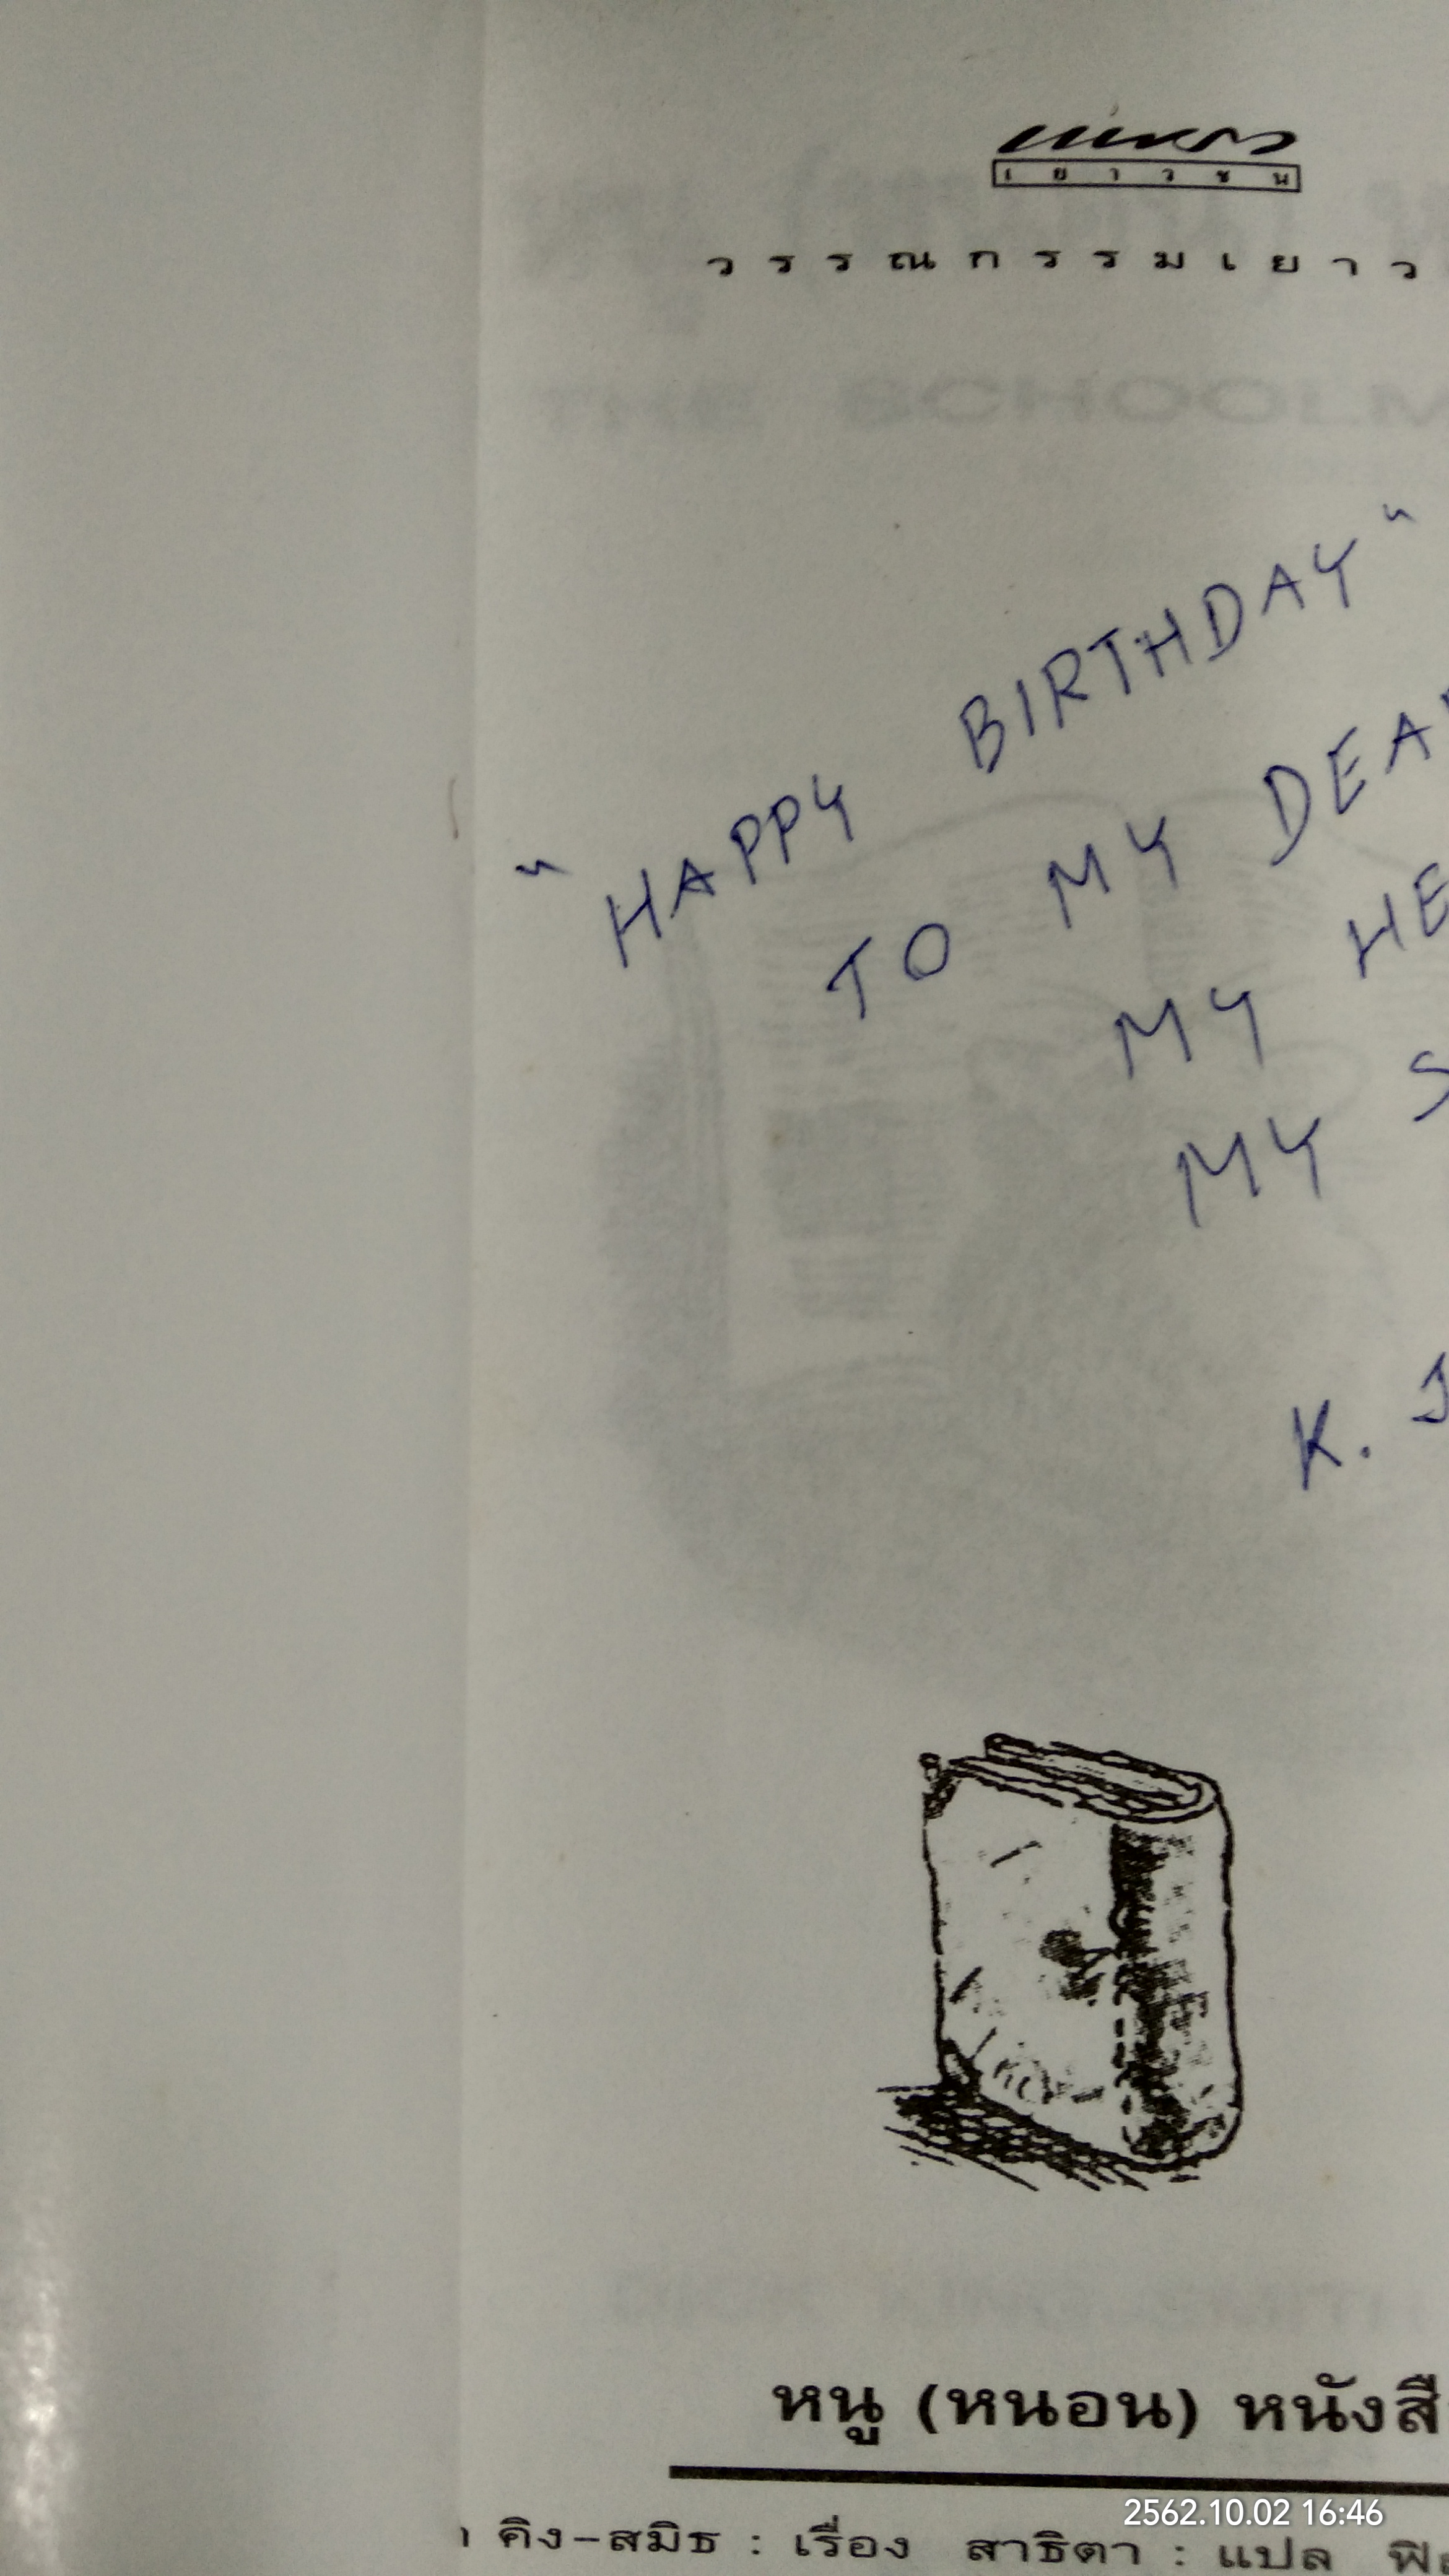 แพรว
เยาวชน
วรรณกรรมเยาว
THE SCHOOLM
"HAPPY BIRTHDAY"
TO MY DEA
MY HE
MY S
K. J
หนู (หนอน) หนังสื
คิง-สมิธ : เรื่อง สาธิตา : แปล
2562.10.02 16:46